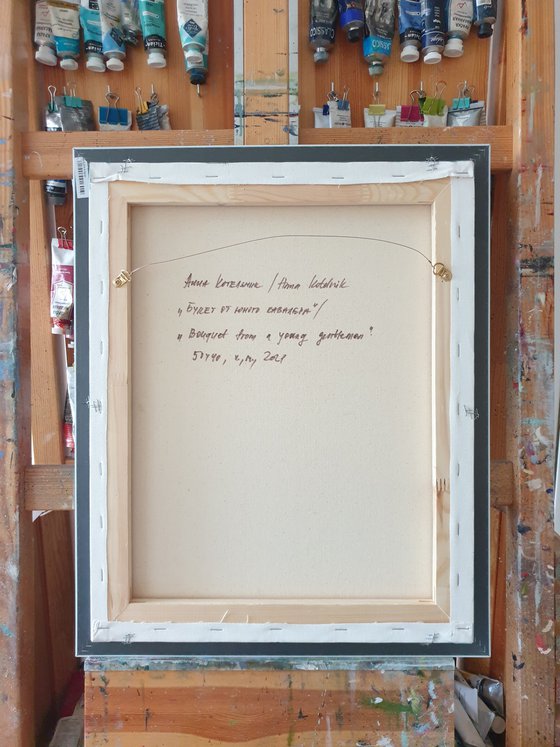 Анна Котельник / Anna Kotelnik
„Букет от юного кавалера"/
„Bouquet from a young gentleman"
50х40, х,м, 2021